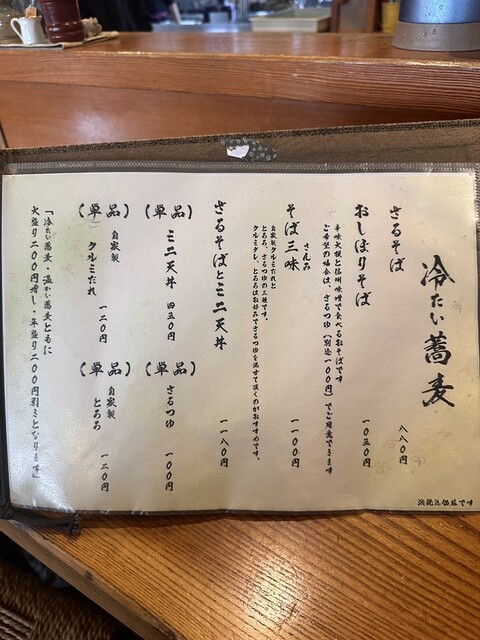 冷たい蕎麦
ざるそば 八八〇円
おしぼりそば 一〇五〇円
辛味大根と信州味噌で食べるおそばです
ご希望の場合は、ざるつゆ(別途一〇〇円)でご用意できます
さんみ
そば三味 一一〇〇円
自家製クルミだれと
とろろ、ざるつゆの三種です。
クルミダレ、とろろはお好みでざるつゆを混ぜて頂くのがおすすめです。
ざるそばとミニ天丼 一一八〇円
(単品)
ミニ天丼 四五〇円
(単品)
ざるつゆ 一〇〇円
(単品)
自家製
クルミだれ 一二〇円
(単品)
自家製
とろろ 一二〇円
「冷たい蕎麦・温かい蕎麦ともに
大盛り二〇〇円増し・半盛り二〇〇円引きとなります」
※税込価格です